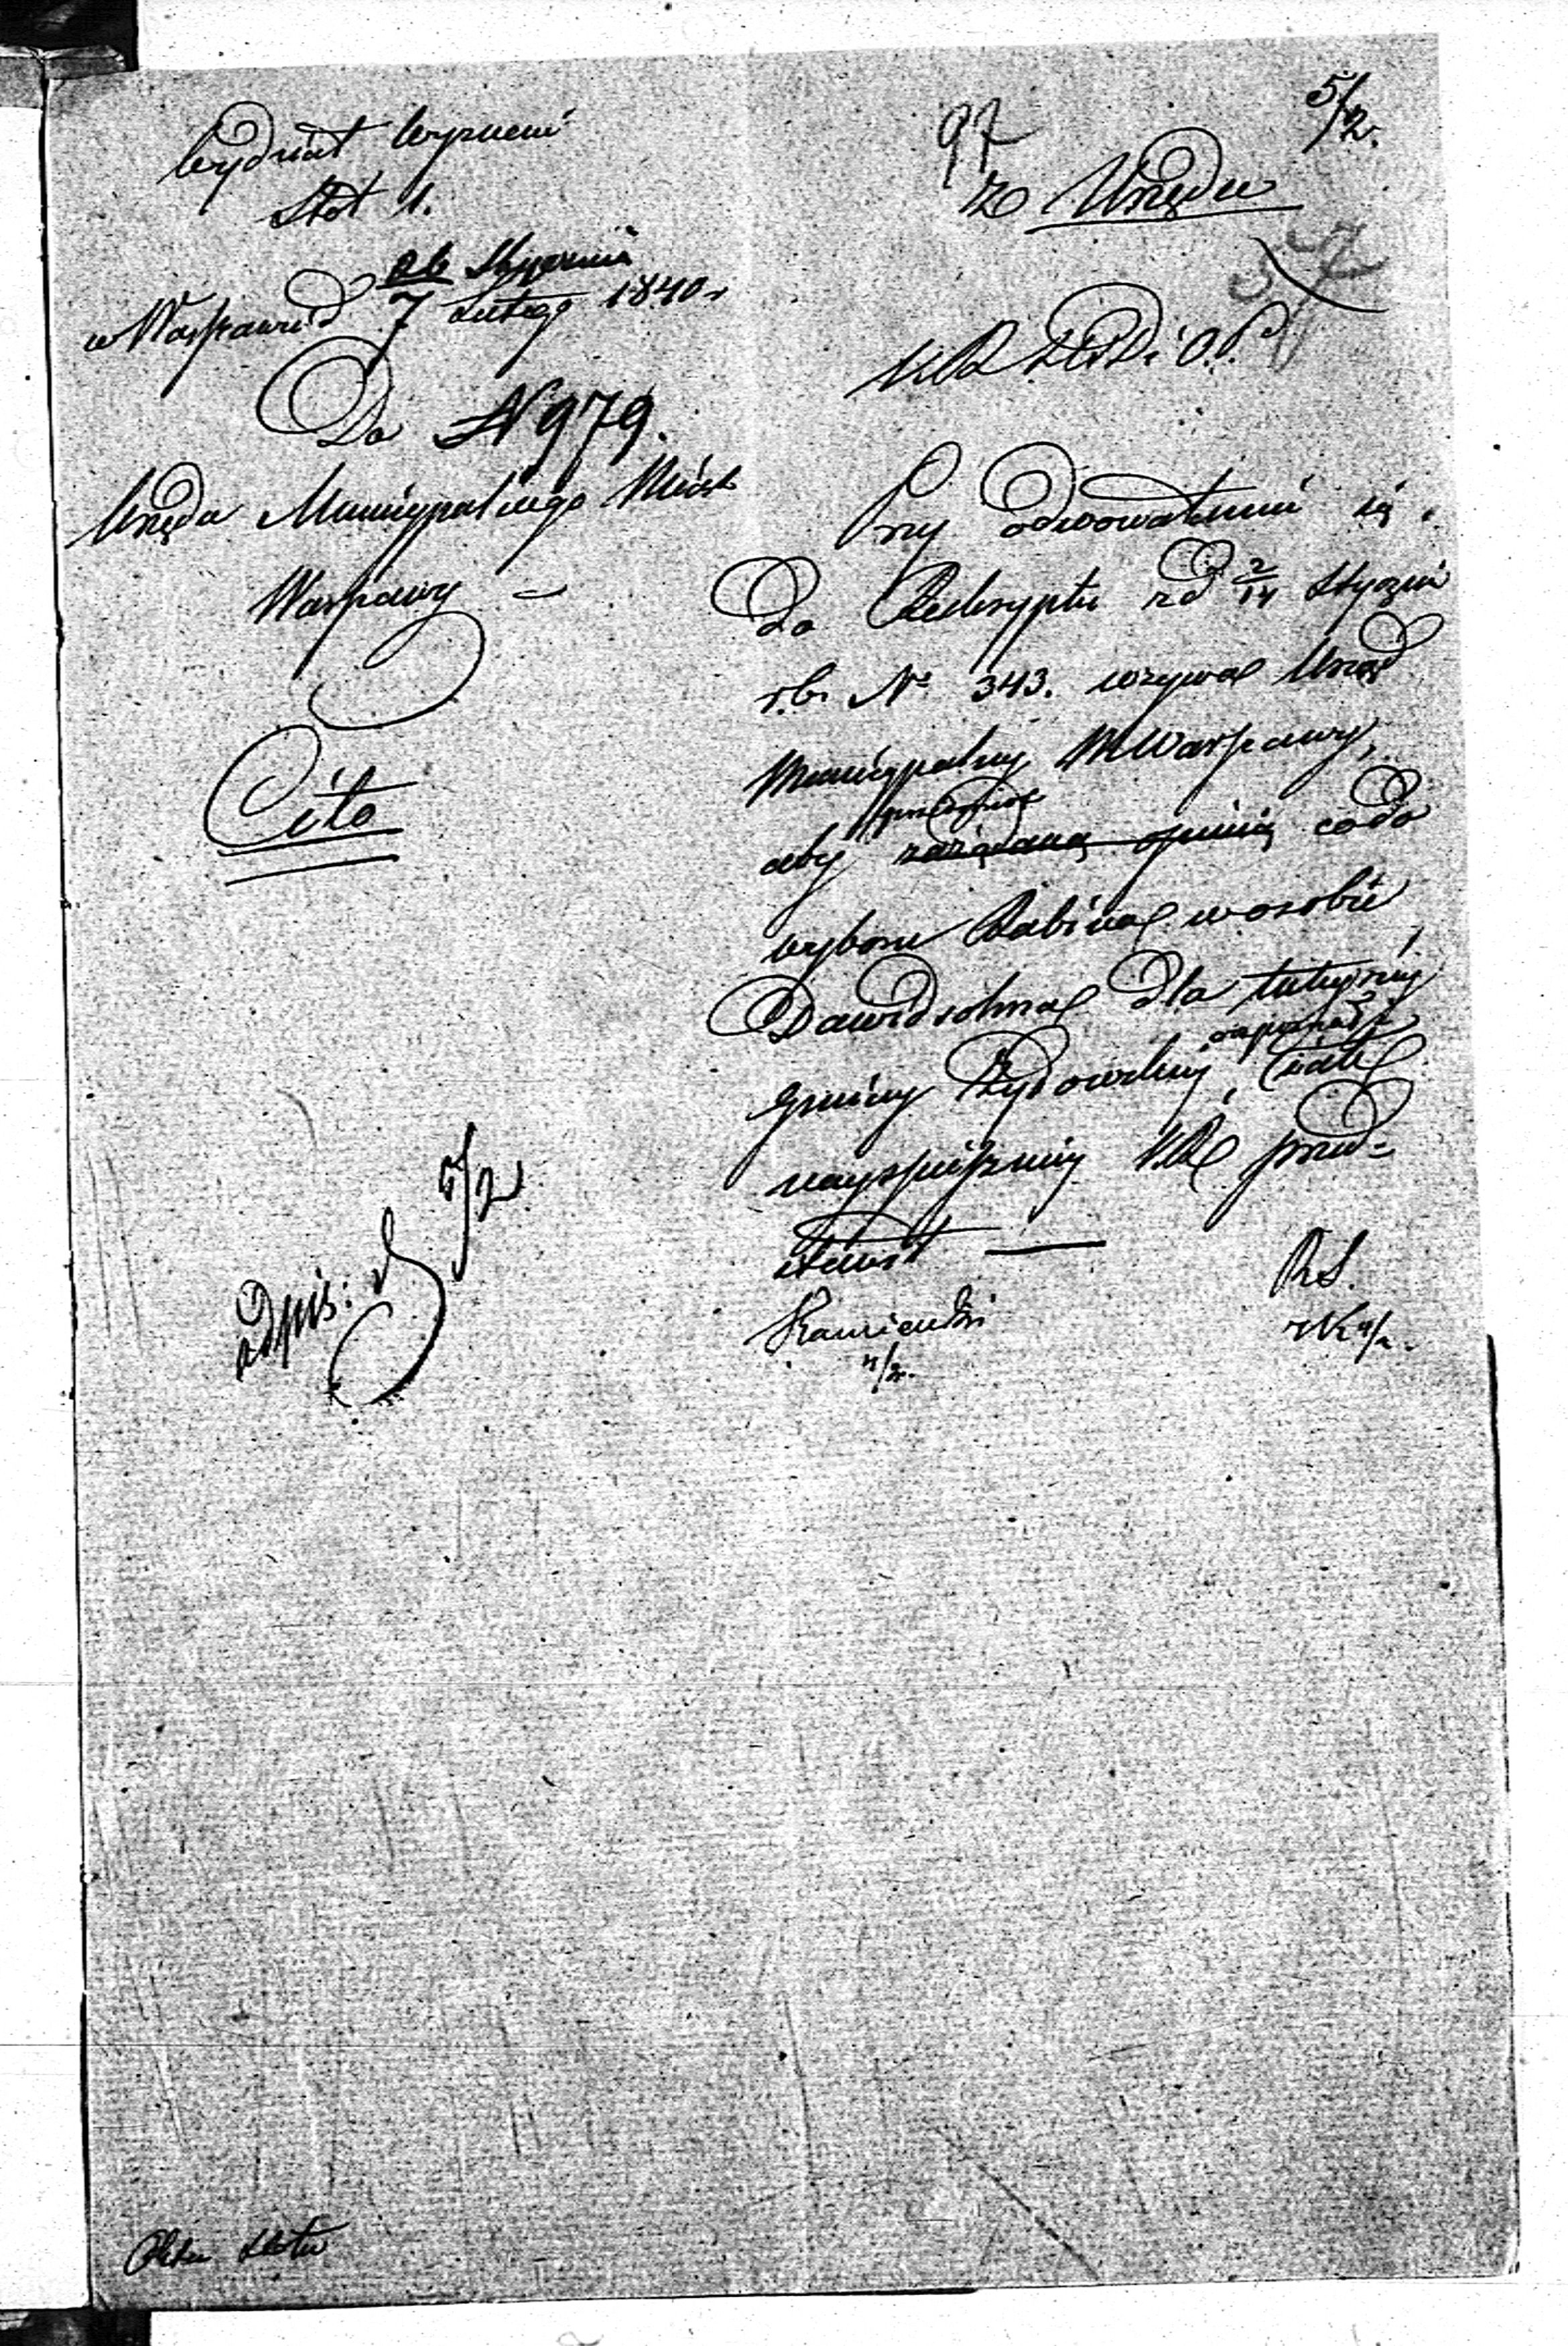 Wydział Wyznań
Sekt 1.
w Warszawie d 26 Stycznia
7 Lutego 1840 r
Do N 979.
Urzędu Municypalnego Miasta
Warszawy
Cito
adpis: d 5/2
97
5/2.
Z Urzędu
57
K R S W D i O. P.
Przy odwołaniu się
do Reskryptu z d 2/14 Stycznia
r.b. N° 343. wzywa Urząd
Municypalny M Warszawy,
aby zażądaną opinią co do
wyboru Rabina w osobie
Dawidsohna dla tutejszéj
Gminy Żydowskiéj
nayspieszniéj K.R. przed-
stawił
Kamieński
4/2.
RS.